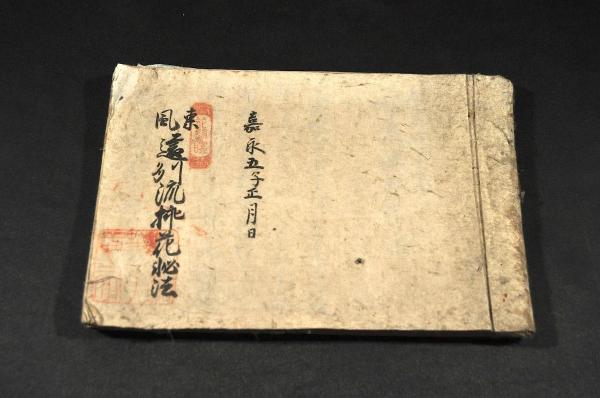 嘉永五子正月日
東風遠州流挿花秘法